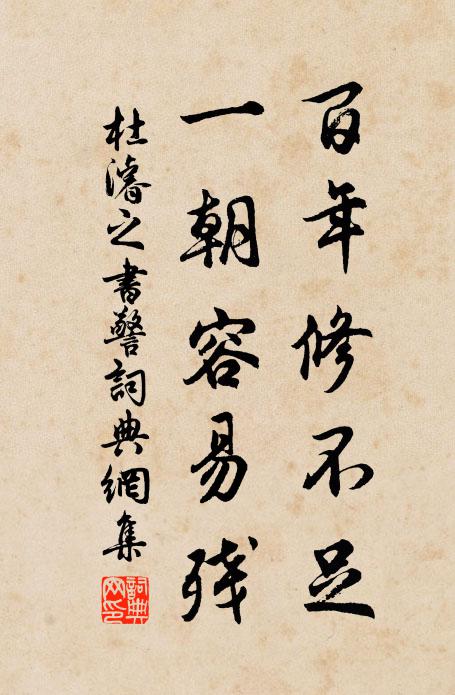 百年修不足
一朝容易残
杜濬之書警詞典網集
詞典網印